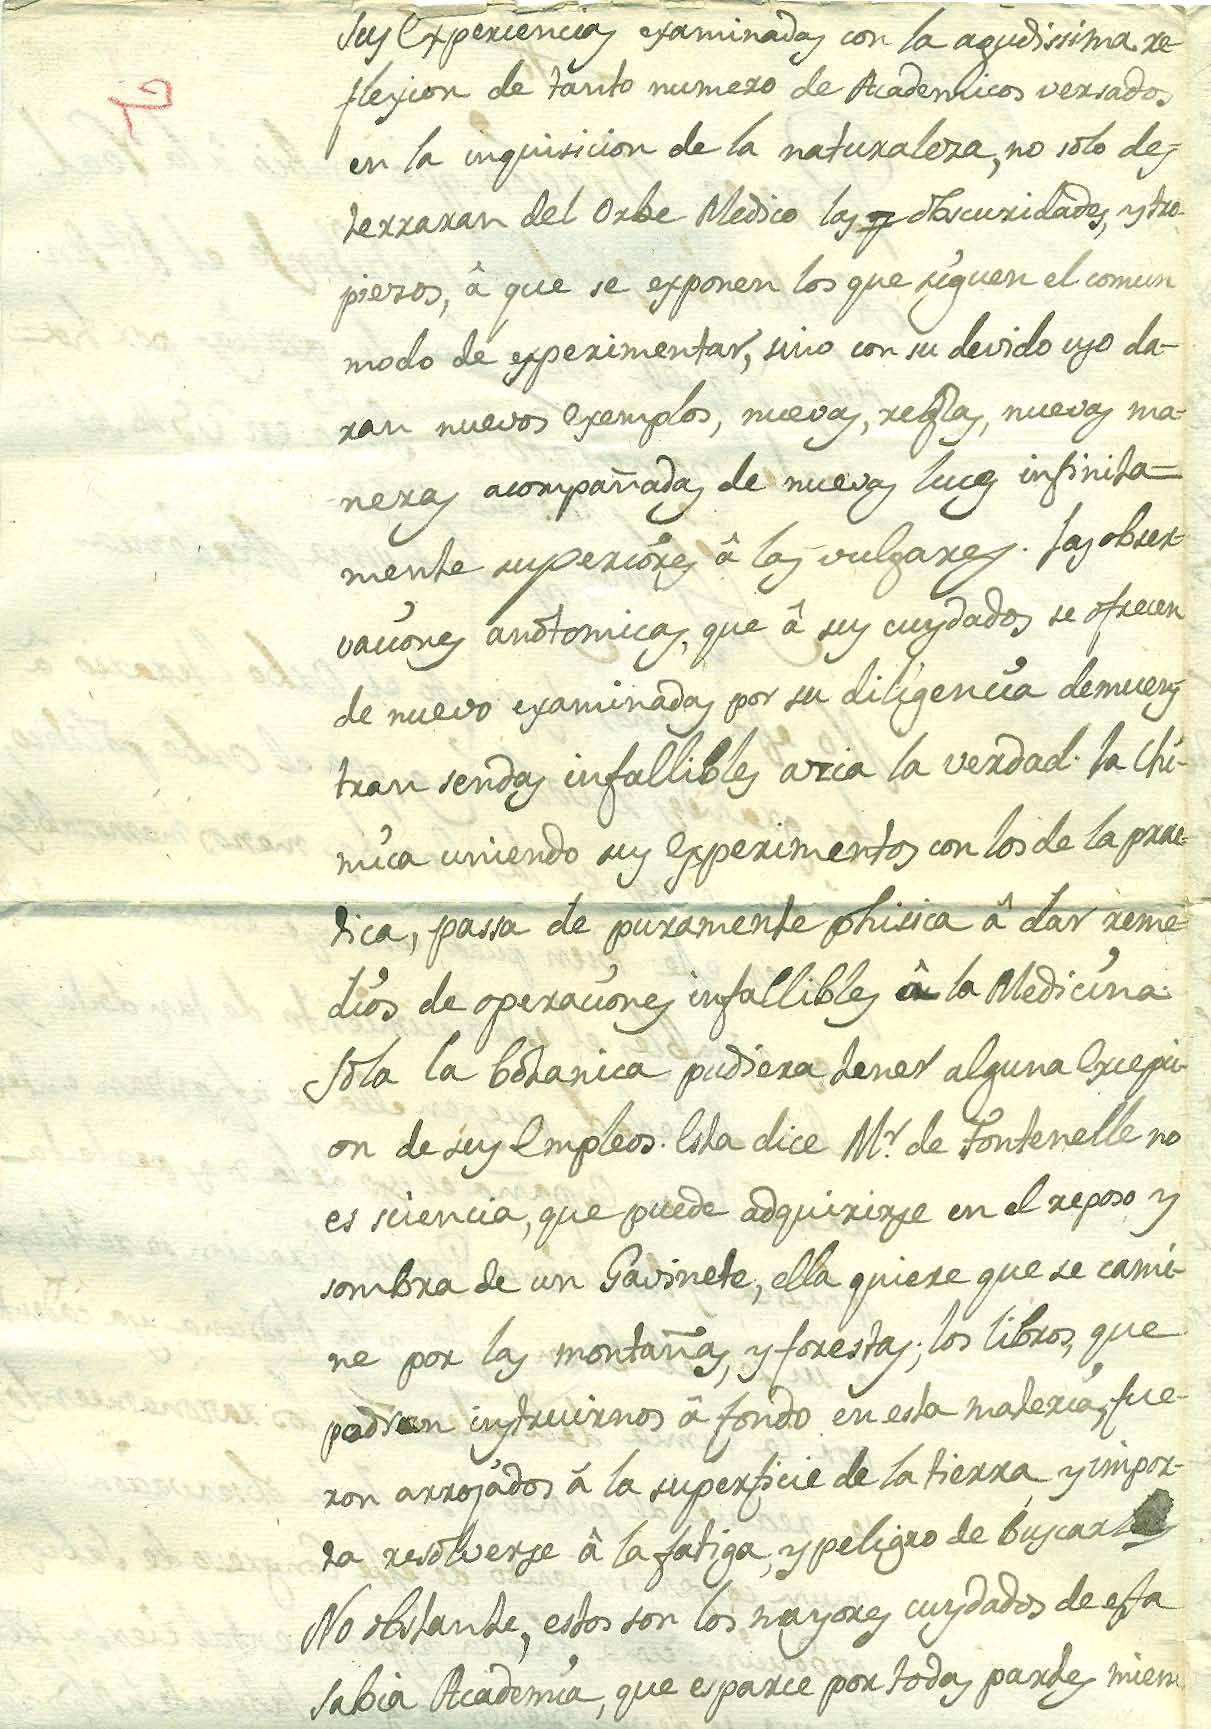 2
sus experiencias examinadas con la agudissima re-
flexion de tanto numero de Academicos versados
en la inquisicion de la naturaleza, no sólo des-
terraran del Orbe Medico las obscuridades, y tro-
piezos, â que se exponen los que siguen el comun
modo de experimentar, sino con su devido uso da-
ran nuevos exemplos, nuevas, reglas, nuevas ma-
neras acompañadas de nuevas luces infinita=
mente superiores â las vulgares. Las obser-
vaciones anòtomicas, que â sus cuydados se ofrecen
de nuevo examinadas por su diligencia demues-
tran sendas infallibles azia la verdad. La Chi-
mica uniendo sus experimentos con los de la prac-
tica, passa de puramente phisica â dar reme-
dios de operaciones infallibles â la Medicina.
Sòla la bòtanica pudiera tener alguna excepci-
on de sus empleos. Esta dice Mr. de Fontenelle no
es sciencia, que puede adquirirse en el reposo y
sombra de un Gavinete, ella quiere que se cami-
ne por las montañas, y forestas; los libros, que
podrian instruirnos â fondo en esta materia, fue-
ron arrojados â la superficie de la tierra, y impor-
ta resolverse â la fatiga, y peligro de buscarlos
No obstante, estos son los mayores cuydados de esta
sabia Academia, que esparce por todas partes miem